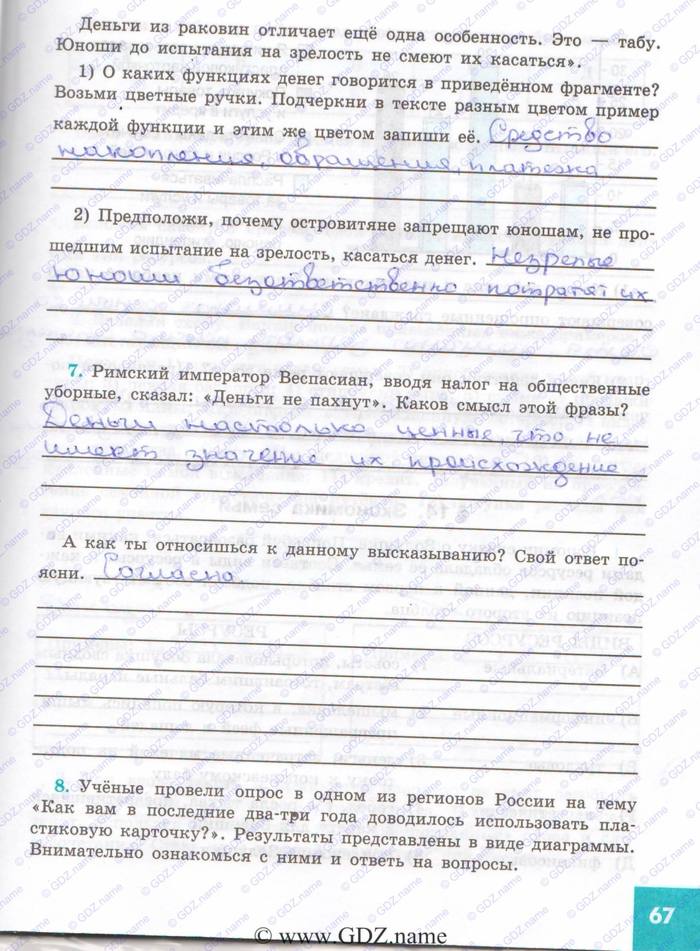 Деньги из раковин отличает ещё одна особенность. Это — табу.
Юноши до испытания на зрелость не смеют их касаться».
1) О каких функциях денег говорится в приведённом фрагменте?
Возьми цветные ручки. Подчеркни в тексте разным цветом пример
каждой функции и этим же цветом запиши её. Средство
накопления, обращения, платежа
2) Предположи, почему островитяне запрещают юношам, не про-
шедшим испытание на зрелость, касаться денег. Незрелые
юноши безответственно потратят их
7. Римский император Веспасиан, вводя налог на общественные
уборные, сказал: «Деньги не пахнут». Каков смысл этой фразы?
Деньги настолько ценные, что не
имеет значение их происхождение
А как ты относишься к данному высказыванию? Свой ответ по-
ясни. Согласна
8. Учёные провели опрос в одном из регионов России на тему
«Как вам в последние два-три года доводилось использовать пла-
стиковую карточку?». Результаты представлены в виде диаграммы.
Внимательно ознакомься с ними и ответь на вопросы.
67
© www.GDZ.name